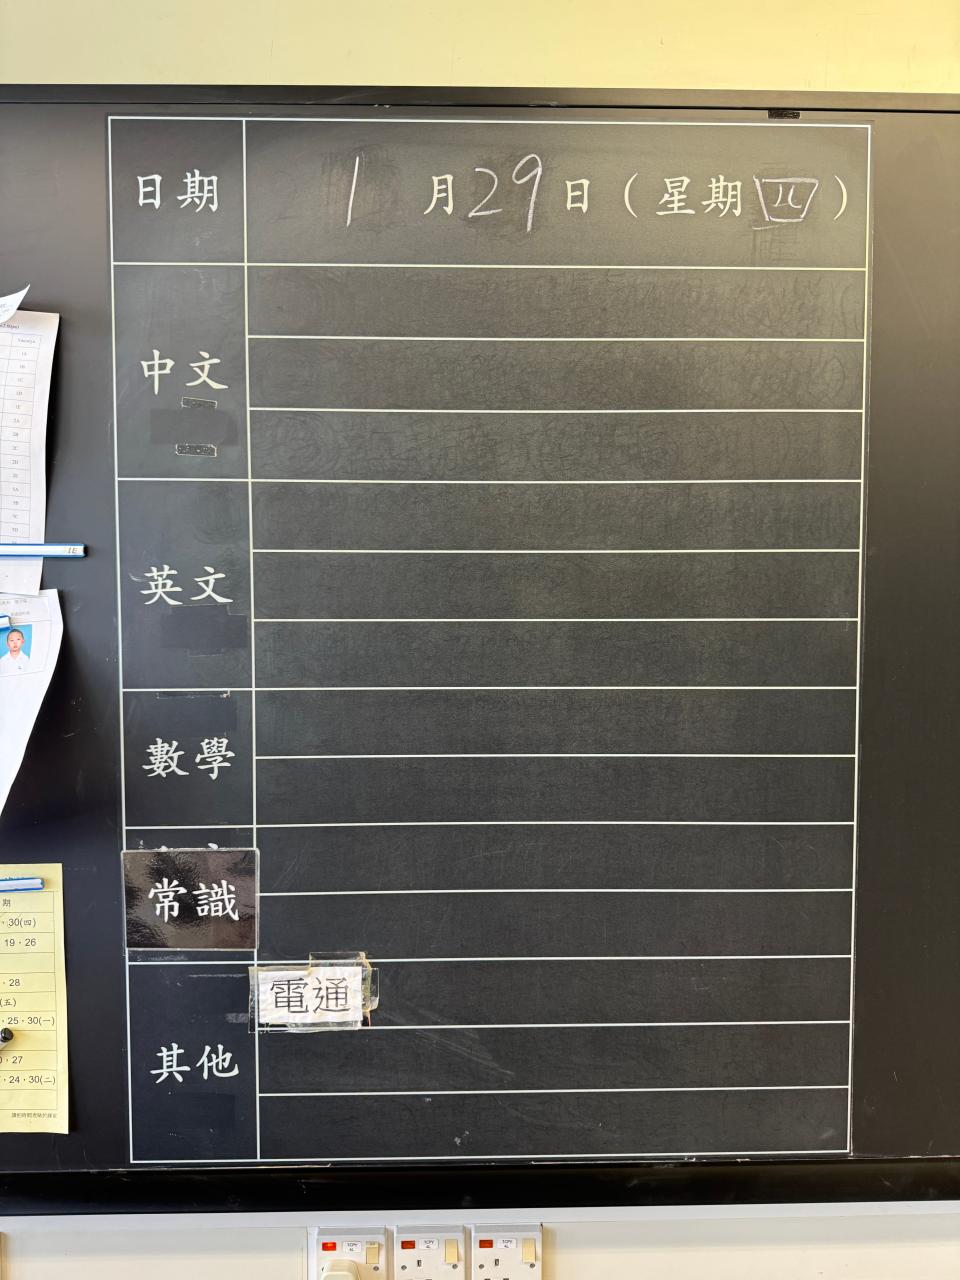 日期 1月29日（星期四）
中文
英文
數學
常識
電通
其他
1E
期
30(四)
19 · 26
28
(五)
25 · 30(一)
27
24 · 30(二)
TCPY
4L
TCPY
4L
TCPY
4L